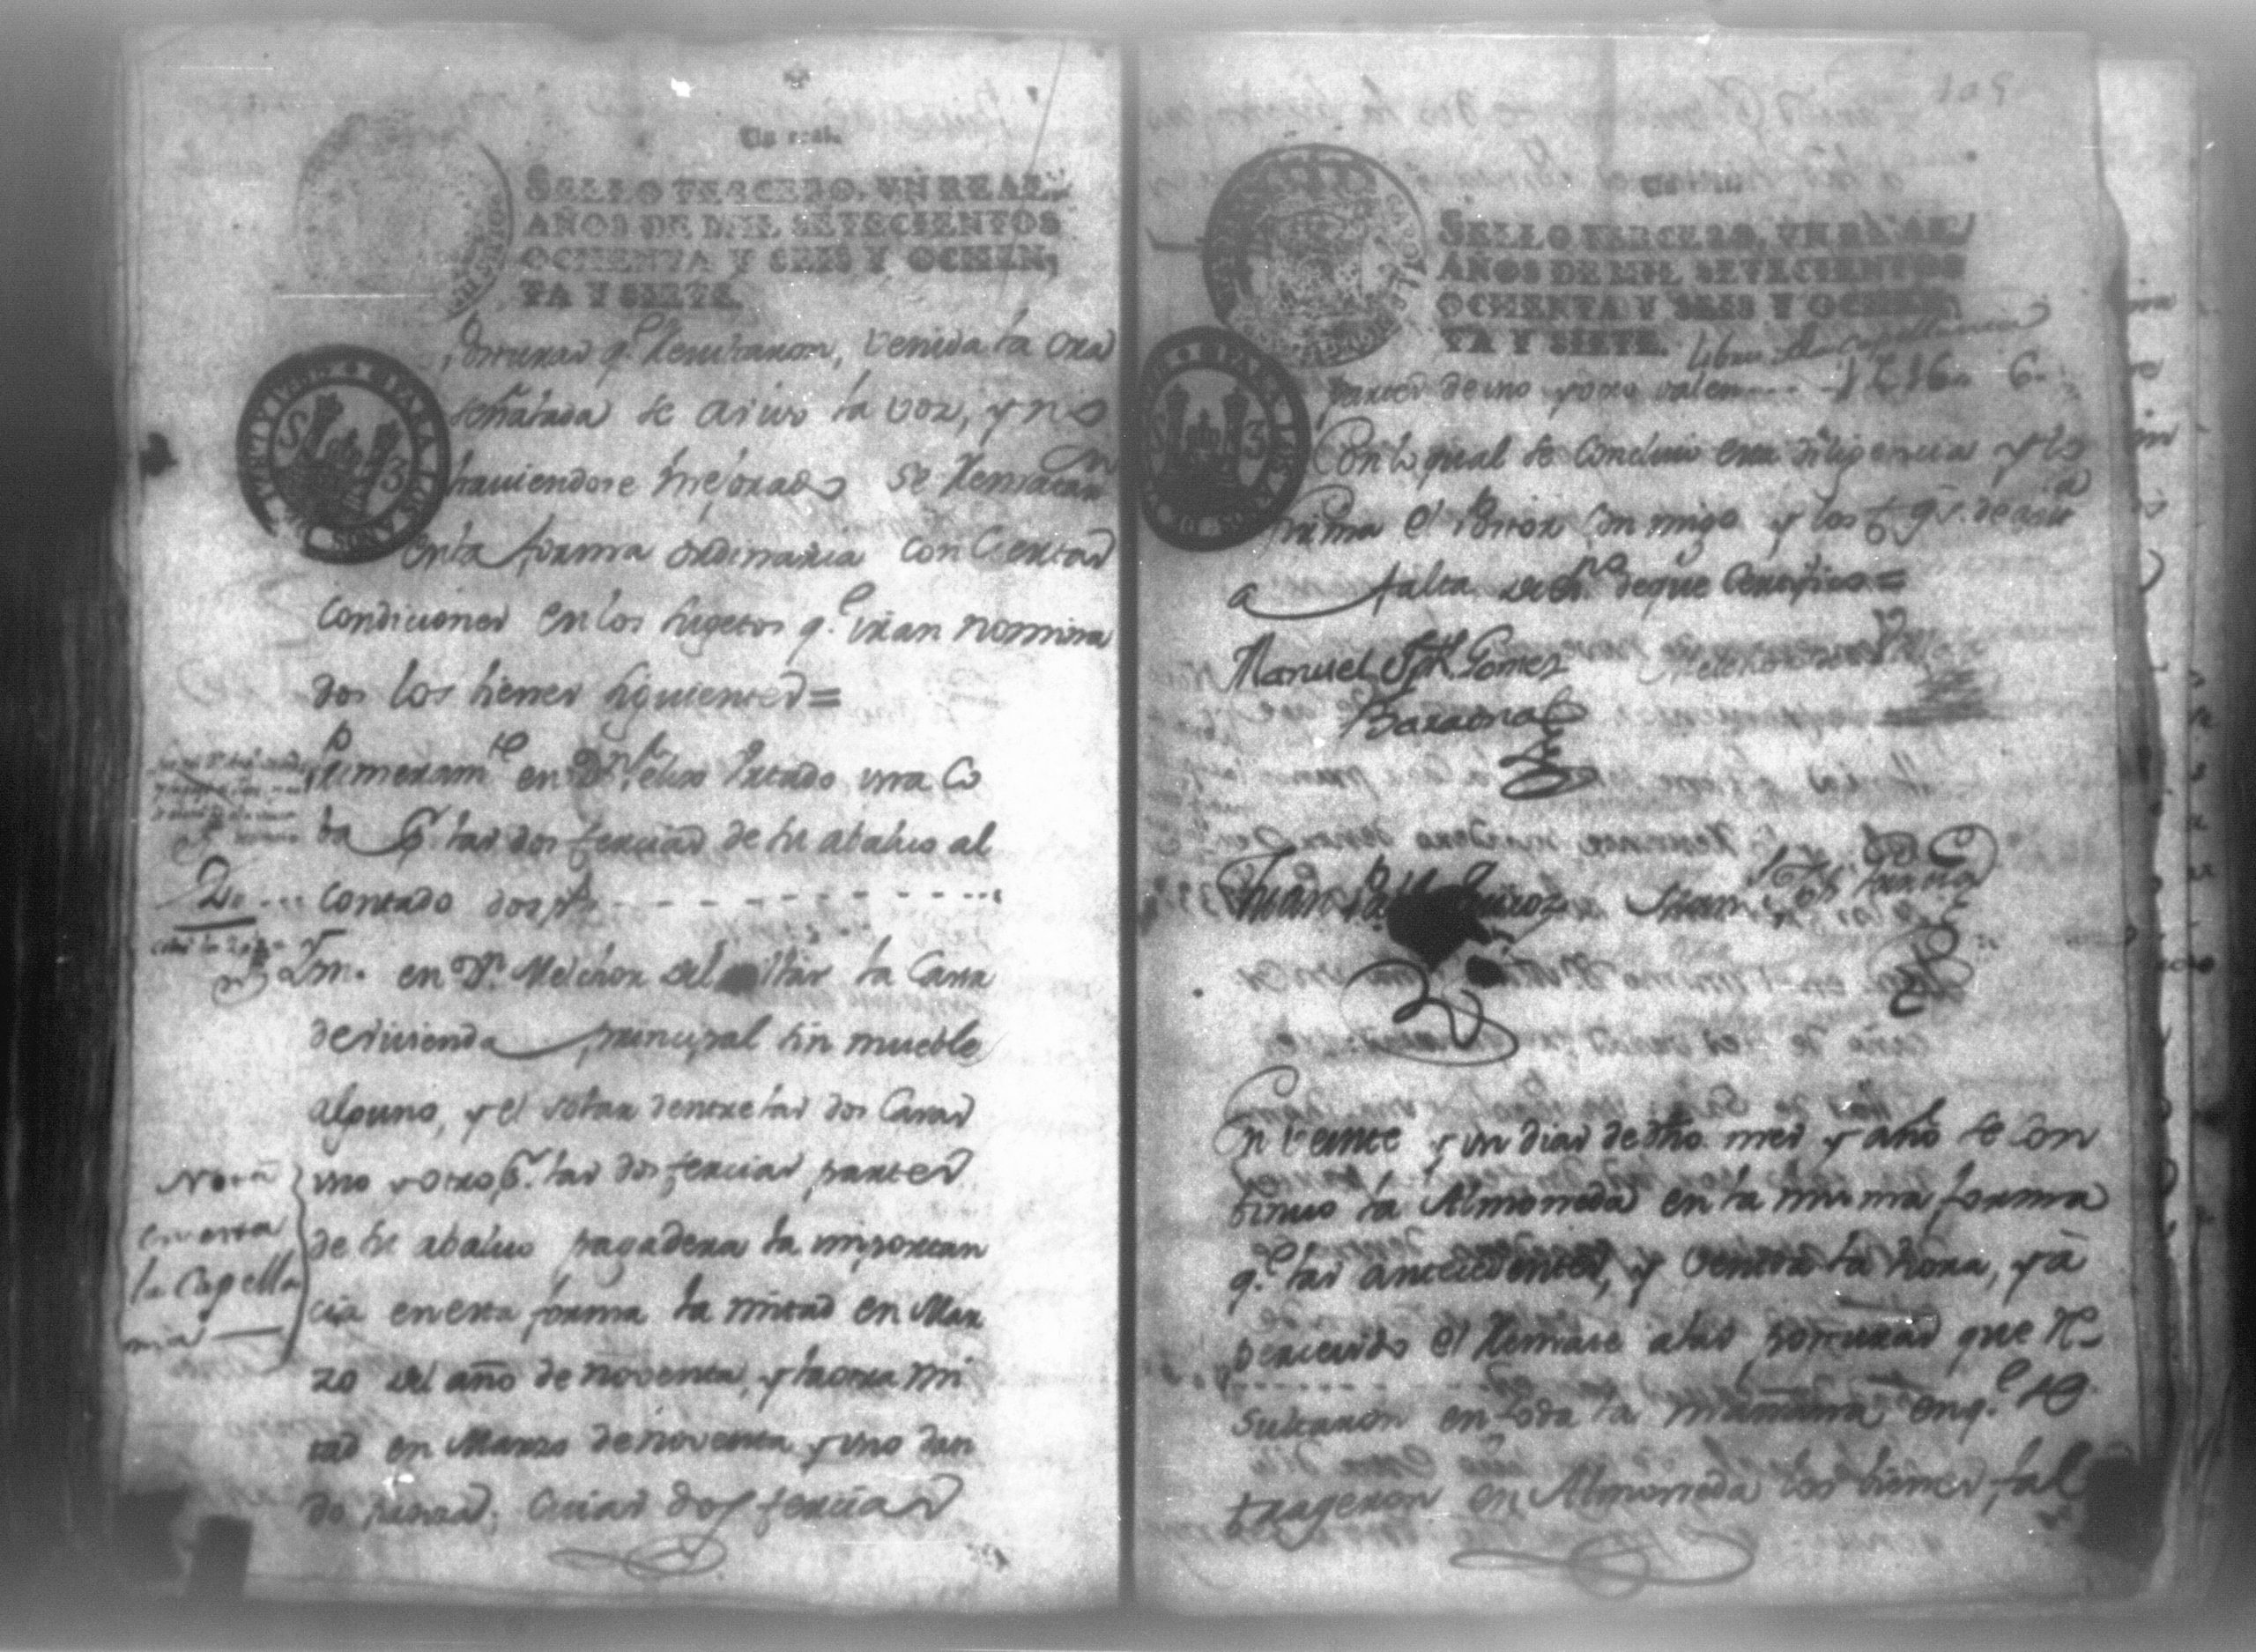 Un real.
SELLO TERCERO, UN REAL,
AÑOS DE MIL SETECIENTOS
OCHENTA Y SEIS Y OCHEN,
TA Y SIETE.
posturas q.e Resultaron, venida la ora
señalada se avivo la voz, y no
haviendose mejorado se Remataron
en la forma ordinaria con Ciertas
Condiciones en los sugetos q.e iran nomina
dos los bienes siguientes=
Primeram.te en D.n Felix Hurtado una Co
ba p.r las dos tercias de su abaluo al
2 ... contado dos p.s
Itm. en D.n Melchor del Villar la Casa
de vivienda principal sin mueble
alguno, y el solar dentre las dos Casas
uno y otro p.r las dos tercias partes
de su abaluo pagadera la importan
cia en esta forma la mitad en Mar
zo del año de noventa, y la otra mi
tad en Marzo de noventa y uno dan
do fianza; Cuias dos tercias
Nota
en esta
la Capella
nia
109
Un real.
SELLO TERCERO, UN REAL,
AÑOS DE MIL SETECIENTOS
OCHENTA Y SEIS Y OCHEN,
TA Y SIETE.
libre de Capellania
partes de uno y otro valen 6.
Con lo qual se concluio esta diligencia y lo
firma el Postor Conmigo y los t.gs de asist.a
a falta de Es.no de que Certifico=
Manuel Jph. Gomez
Baraona
Melchor
Juan Quiroz
Juan Jph
En veinte y un dias de dho mes y año se con
tinuo la Almoneda en la misma forma
q.e las antecedentes, y venida la hora, y a
percevido el Remate a las posturas que Re
sultaron en toda la mañana, en q.e se
trageron en Almoneda los bienes, fal